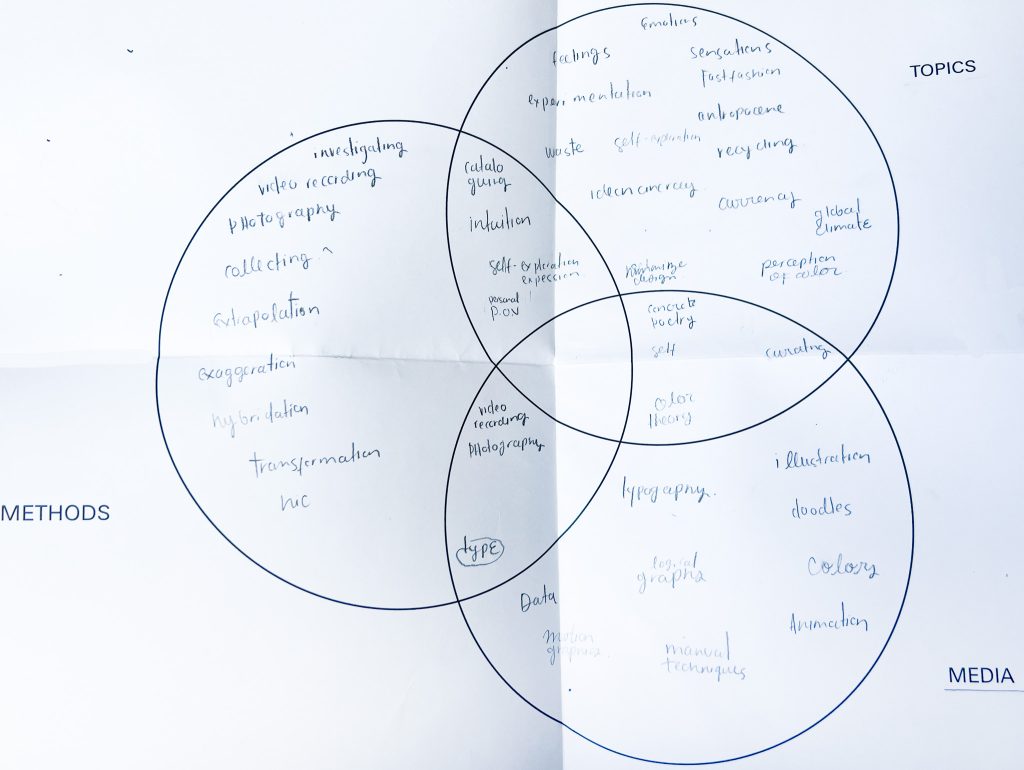 Emotions
feelings
sensations
fastfashion
experimentation
antropocene
waste
self-exploration
recycling
currency
global
climate
perception
of color
design.
TOPICS
investigating
video recording
photography
collecting
extrapolation
exaggeration
hybridation
transformation
METHODS
catalo
guing
intuition
self-exploration
expession
personal
P.OV
concrete
poetry
self
curating
color
theory
video
recording
photography
type
typography.
illustration
doodles
logical
graphs
Colors
Data
Animation
motion
graphics.
manual
techniques
MEDIA